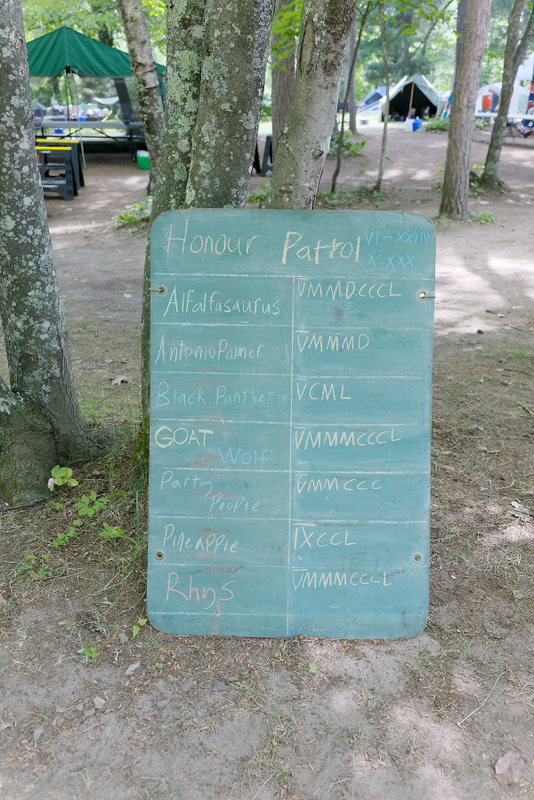 Honour Patrol VI-XXVIII
X:XXX
Alfalfasaurus V̅MMDCCCL
AntonioPalmer V̅MMMD
Black Panther V̅CML
GOAT V̅MMMCCCL
Wolf
Party V̅MMCCC
People
Pineapple I̅X̅CCL
Rhys V̅MMMCCCL